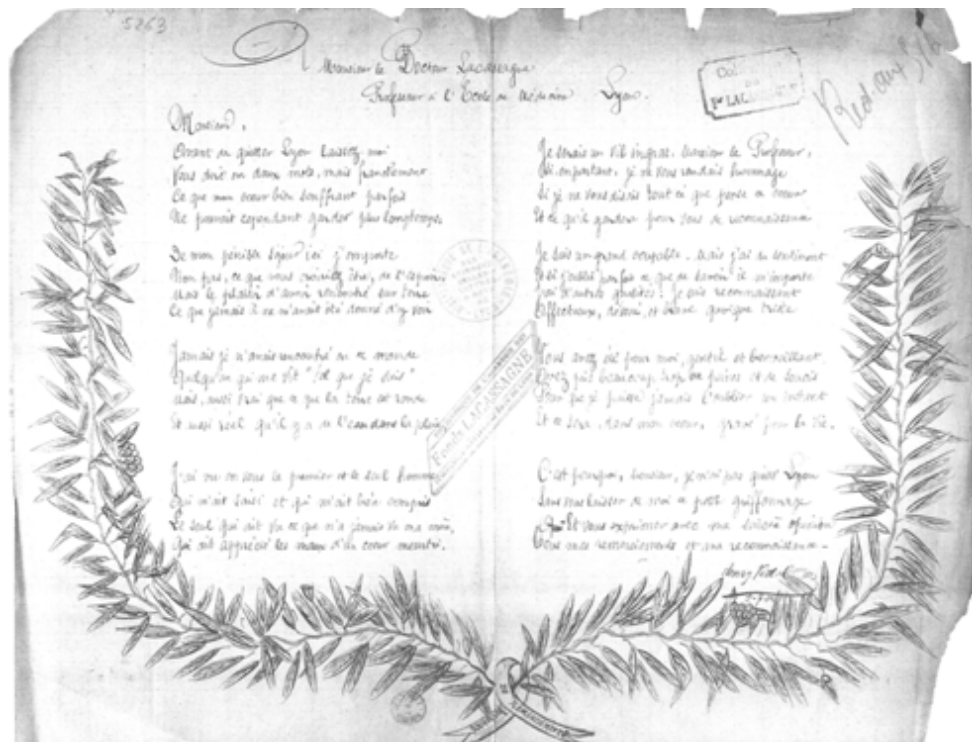 5263
A Monsieur le Docteur Lacassagne
Professeur à l'Ecole de Médecine Lyon.
Monsieur,
Avant de quitter Lyon laissez moi
Vous dire en deux mots, mais franchement
Ce que mon cœur bien souffrant parfois
Ne pourrait cependant garder plus longtemps.
De mon pénible séjour ici j'emporte
Non pas, ce que vous croiriez être, de l'espoir,
Mais le plaisir d'avoir rencontré sur terre
Ce que jamais il ne m'avait été donné d'y voir
Jamais je n'avais rencontré en ce monde
Quelqu'un qui me dit "tel que je suis"
Mais, aussi vrai que ce que la terre est ronde
Et aussi réel qu'il y a de l'eau dans la pluie
J'ai vu en vous le premier et le seul homme
Qui m'ait saisi et qui m'ait bien compris
Le seul qui ait vu ce que n'a jamais vu ma mère,
Qui ait apprécié les maux d'un cœur meurtri.
Je serais un vil ingrat, Monsieur le Professeur,
Si, en partant, je ne vous rendais hommage
Si je ne vous disais tout ce que pense ce cœur
Et ce qu'il gardera pour vous de reconnaissance
Je suis un grand coupable, mais j'ai du sentiment
Et si j'oublie parfois ce que de savoir il m'importe
J'ai d'autres qualités: Je suis reconnaissant
Affectueux, dévoué, et brave quoique triste
Vous avez été pour moi, gentil et bienveillant,
Avez fait beaucoup, trop de faires et de savoir
Pour que je puisse jamais l'oublier un instant
Et ce sera, dans mon cœur, gravé pour la vie.
C'est pourquoi, Monsieur, je n'ai pas quitté Lyon
Sans vous laisser de moi ce petit griffonnage
Et vous exprimer avec une
Tous mes remerciements et ma reconnaissance -
Fonds LACASSAGNE